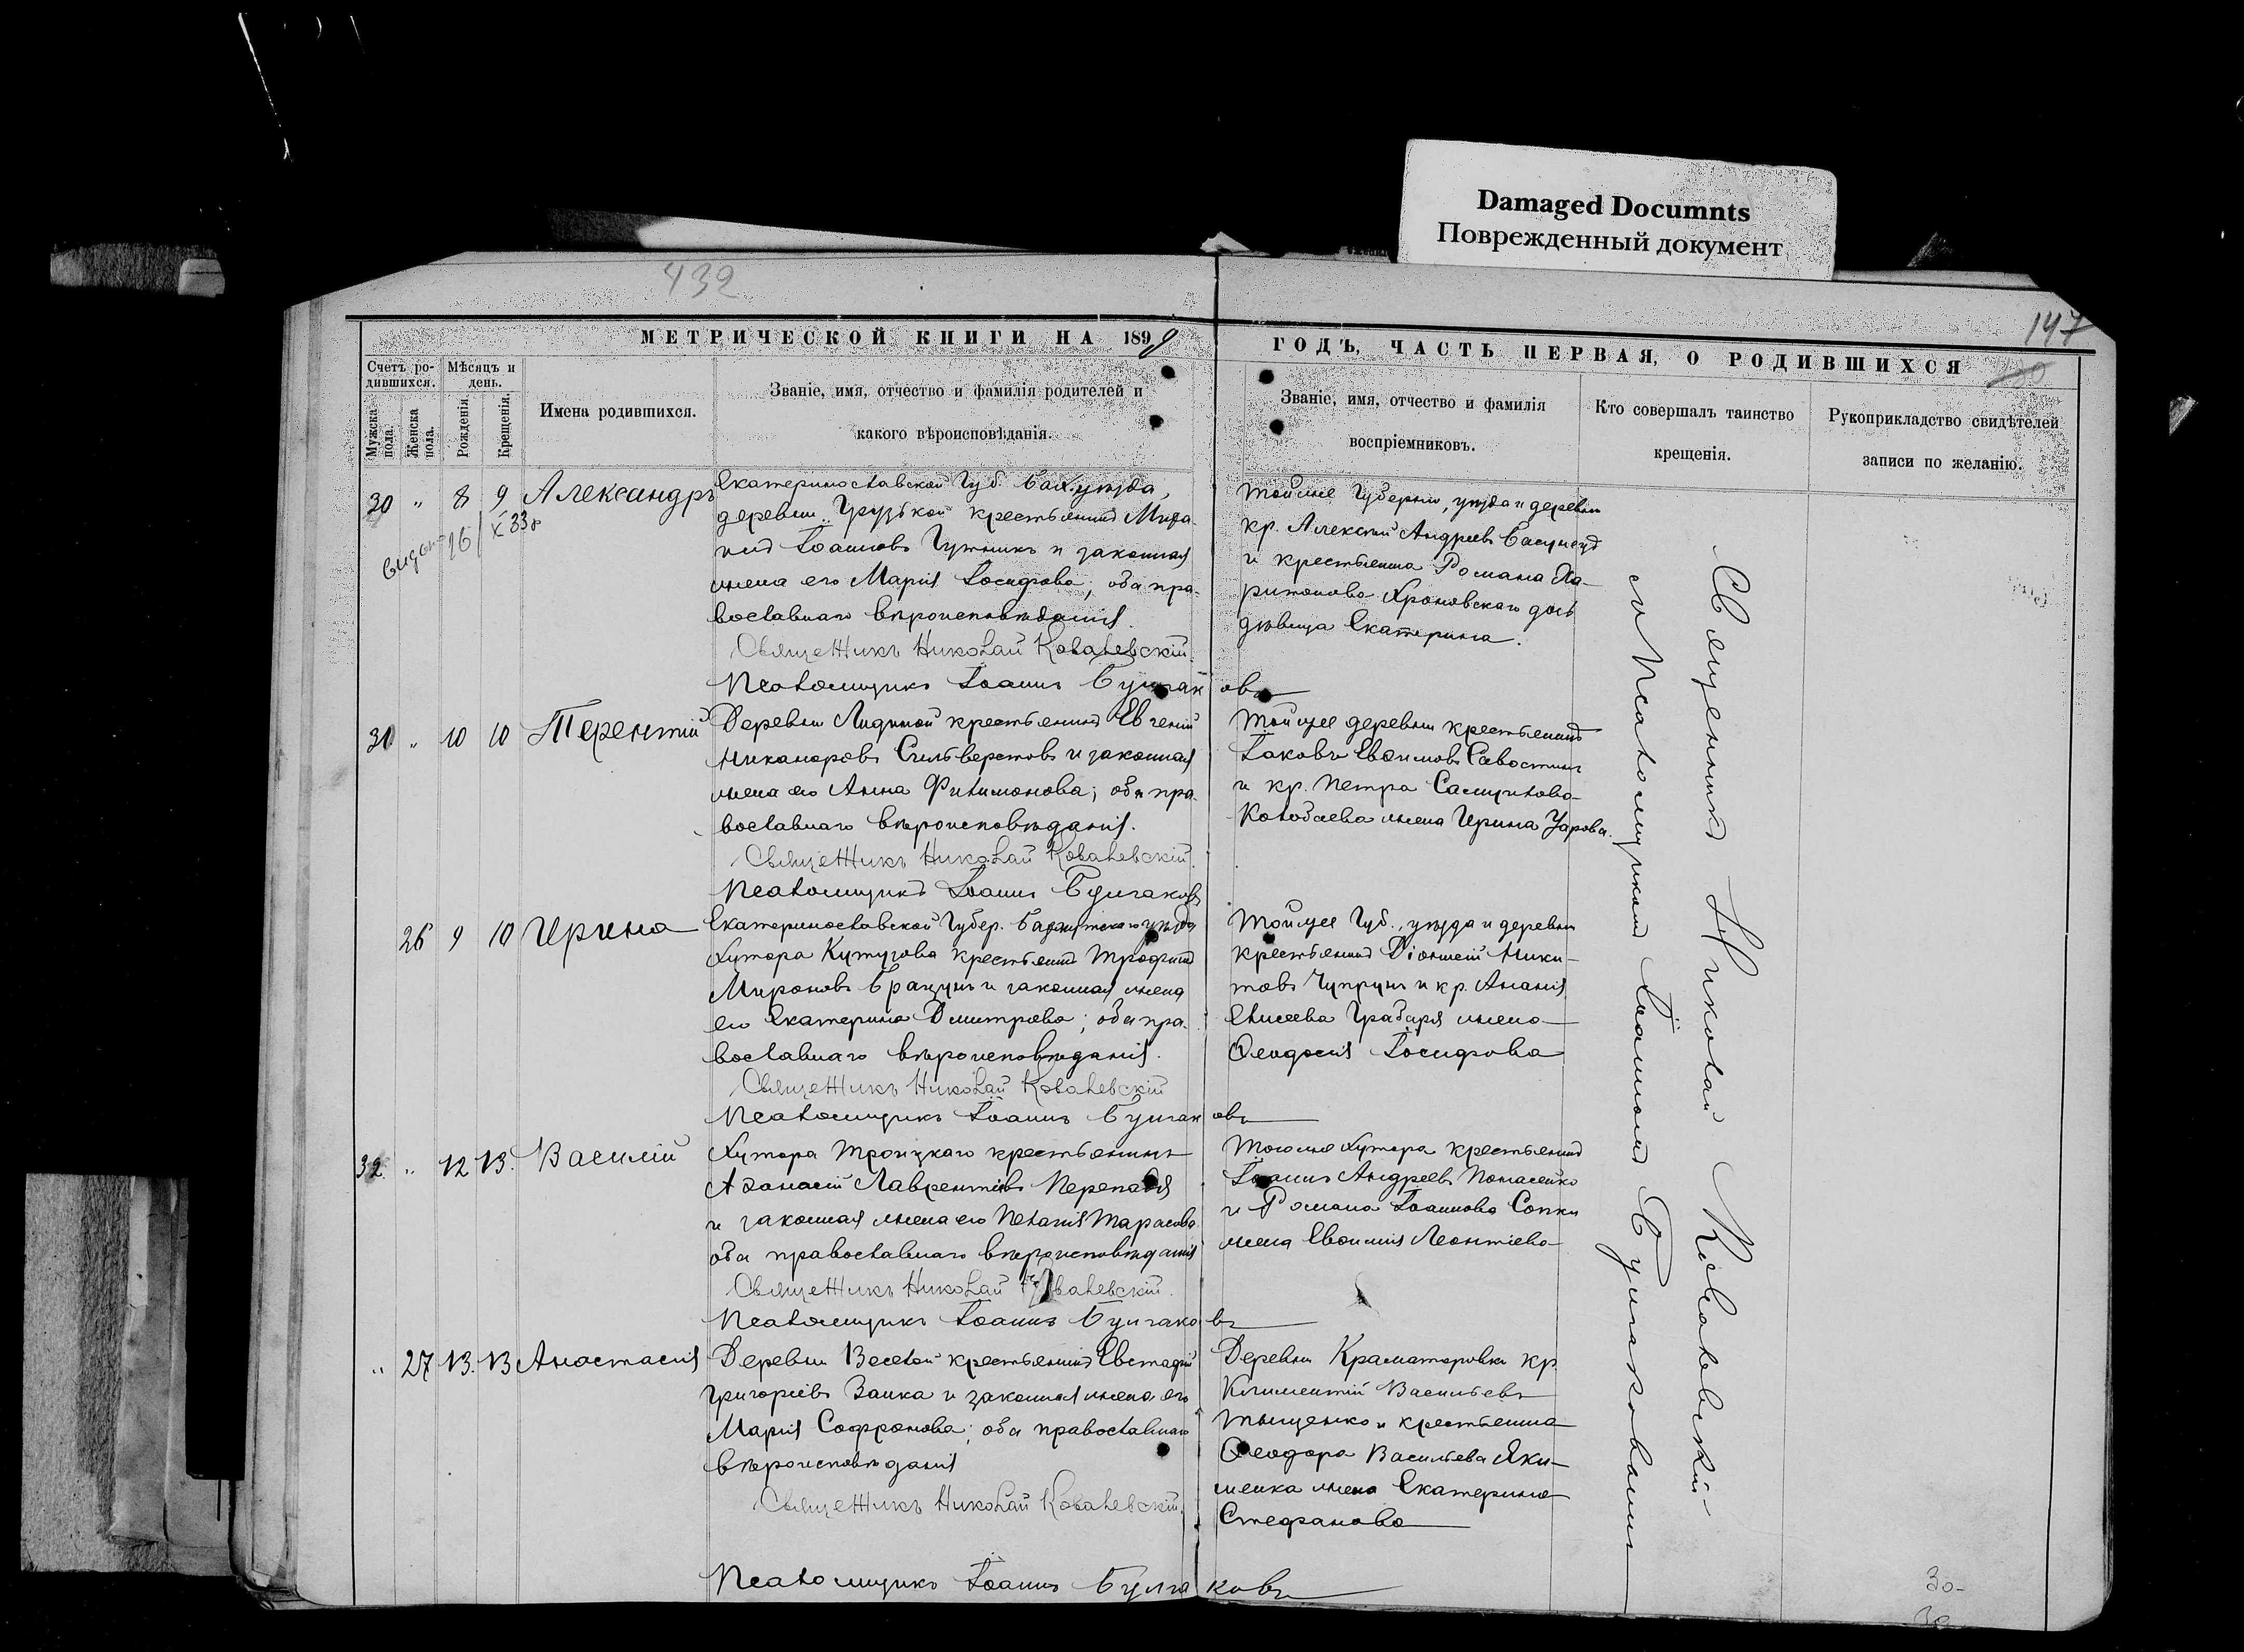 Damaged Documnts
Поврежденный документ
432
147
МЕТРИЧЕСКОЙ КНИГИ НА 1899
ГОДЪ, ЧАСТЬ ПЕРВАЯ, О РОДИВШИХСЯ
Счетъ ро-
дившихся.
Мѣсяцъ и
день.
Мужска
пола.
Женска
пола.
Рожденія.
Крещенія.
Имена родившихся.
Званіе, имя, отчество и фамилія родителей и
какого вѣроисповѣданія.
Званіе, имя, отчество и фамилія
воспріемниковъ.
Кто совершалъ таинство
крещенія.
Рукоприкладство свидѣтелей
записи по желанію.
30 " 8 9 Александръ
Екатеринославской Губ. Бах. уѣзда,
деревни крестьянинъ
Іоанновъ и законная
жена его Марія Іосифова; оба пра-
вославнаго вѣроисповѣданія.
Священникъ Николай Ковалевскій.
Псаломщикъ Іоаннъ Булгаковъ
Той же Губерніи, уѣзда и деревни
кр. Алексій Андреевъ
и крестьянина Романа Ха-
ритонова дочь
дѣвица Екатерина.
31 " 10 10 Терентій
Деревни крестьянинъ Евгеній
Никаноровъ Сильверстовъ и законная
жена его Анна Филимонова; оба пра-
вославнаго вѣроисповѣданія.
Священникъ Николай Ковалевскій
Псаломщикъ Іоаннъ Булгаковъ
Той же деревни крестьянинъ
Іаковъ Евѳимовъ Савостинъ
и кр. Петра Самуилова
жена Ирина
26 9 10 Ирина
Екатеринославской Губер. Бахмутскаго уѣзда
Хутора Кутузова крестьянинъ Трофимъ
Мироновъ и законная жена
его Екатерина Дмитріева; оба пра-
вославнаго вѣроисповѣданія.
Священникъ Николай Ковалевскій
Псаломщикъ Іоаннъ Булгаковъ
Той же Губ., уѣзда и деревни
крестьянинъ Діонисій Ники-
товъ Чупрунъ и кр. Ананія
Елисеева Грабаря жена
Ѳеодосія Іосифова
32 " 12 13. Василій
Хутора Троицкаго крестьянинъ
Аѳанасій Лаврентіевъ
и законная жена его Пелагія Тарасова
оба православнаго вѣроисповѣданія
Священникъ Николай Ковалевскій.
Псаломщикъ Іоаннъ Булгаковъ
Того же хутора крестьянинъ
Іоаннъ Андреевъ
и Романа Іоаннова
жена Евѳимія Леонтіева
" 27 13. 13 Анастасія
Деревни Веселой крестьянинъ Евстафій
Григоріевъ Заика и законная жена его
Марія Софронова; оба православнаго
вѣроисповѣданія
Священникъ Николай Ковалевскій.
Псаломщикъ Іоаннъ Булгаковъ
Деревни Краматоровки кр.
Климентій Васильевъ
Тищенко и крестьянина
Ѳеодора Васильева Яки-
менка жена Екатерина
Стефанова
Священникъ Николай Ковалевскій
съ Псаломщикомъ Іоанномъ Булгаковымъ
30-